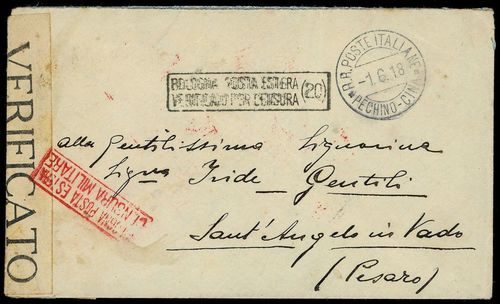 VERIFICATO
BOLOGNA POSTA ESTERA
VERIFICATO PER CENSURA
(20)
R.R. POSTE ITALIANE
-1.6.18
PECHINO-CINA
alla Gentilissima Signorina
Sigⁿᵃ Iride Gentili
Sant'Angelo in Vado
(Pesaro)
POSTA ESTERA
CENSURA MILITARE